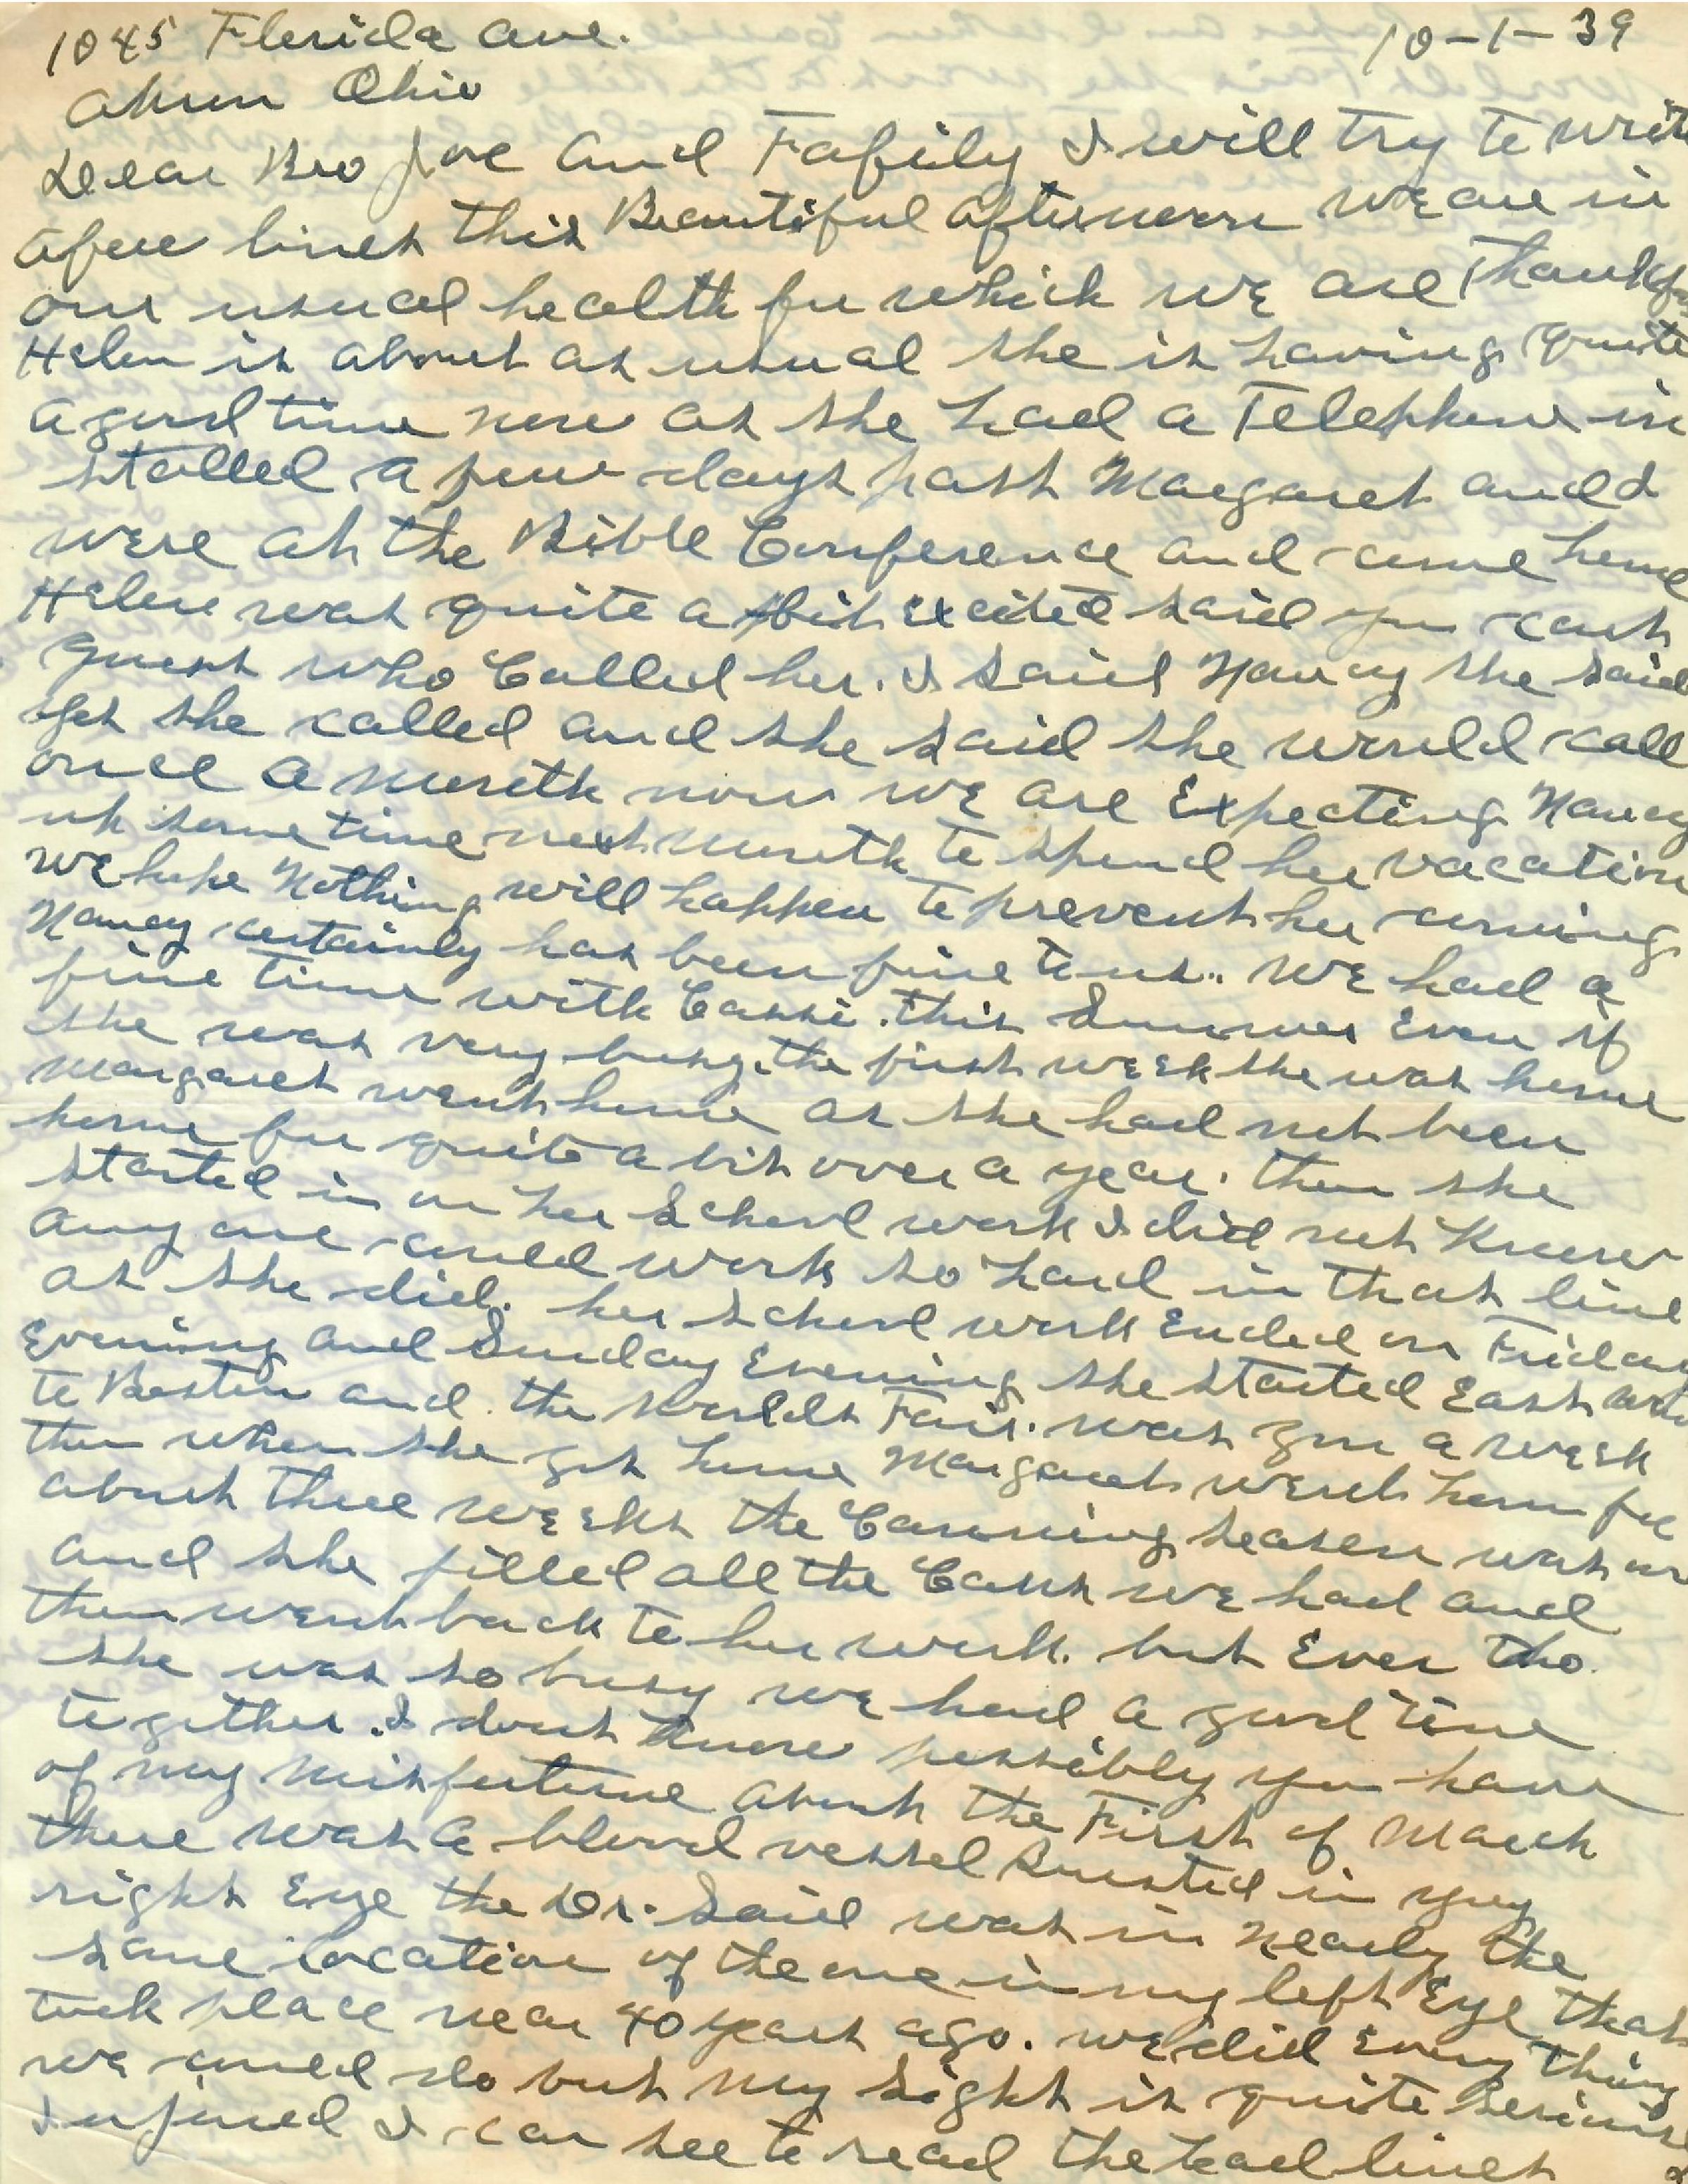 1045 Florida ave. 10-1-39
Akron Ohio
Dear Bro Joe and Fafily I will try to write
a few lines this Beautiful afternoon we are in
our usual health for which we are Thankfu
Helen is about as usual she is having quite
a good time now as she had a Telephone in
stalled a few days past Margaret and I
were at the Bible Conference and come home
Helen was quite a bit excited said you cant
guess who Called her. I said Nancy she said
yes she called and she said she would call
once a month now we are Expecting Nancy
up some time next month to spend her vacation
we hope Nothing will happen to prevent her coming
Nancy certainly has been fine to us.. We had a
fine time with Cassi. this Summer Even if
she was very busy. the first week she was home
Margaret went home as she had not been
home for quite a bit over a year. then she
started in on her School work I did not Know
any one could work so hard in that line
as she did. her School work Ended on Friday
Evening and Sunday Evening she started East
to Boston and the Worlds Fair. was gon a week
then when she got home Margaret went home for
about three weeks the Canning season was on
and she filled all the Cans we had and
then went back to her work. but Even tho
she was so busy we had a good time
together. I dont Know possibly you have
of my misfortune about the First of March
there was a blood vessel Bursted in my
right Eye the Dr. Said was in Nearly the
same location of the one in my left Eye that
took place near 40 years ago. we did Every thing
we could do but my Sight is quite Serious
Injured I can see to read the head lines